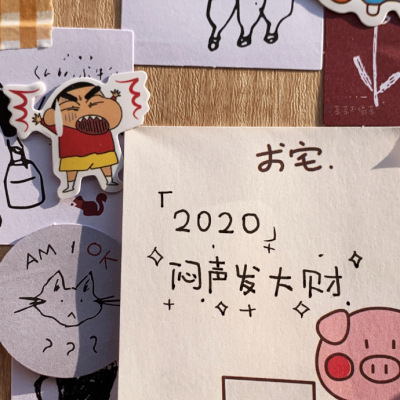 お宅.
「2020」
闷声发大财
AM I OK
? ? ?